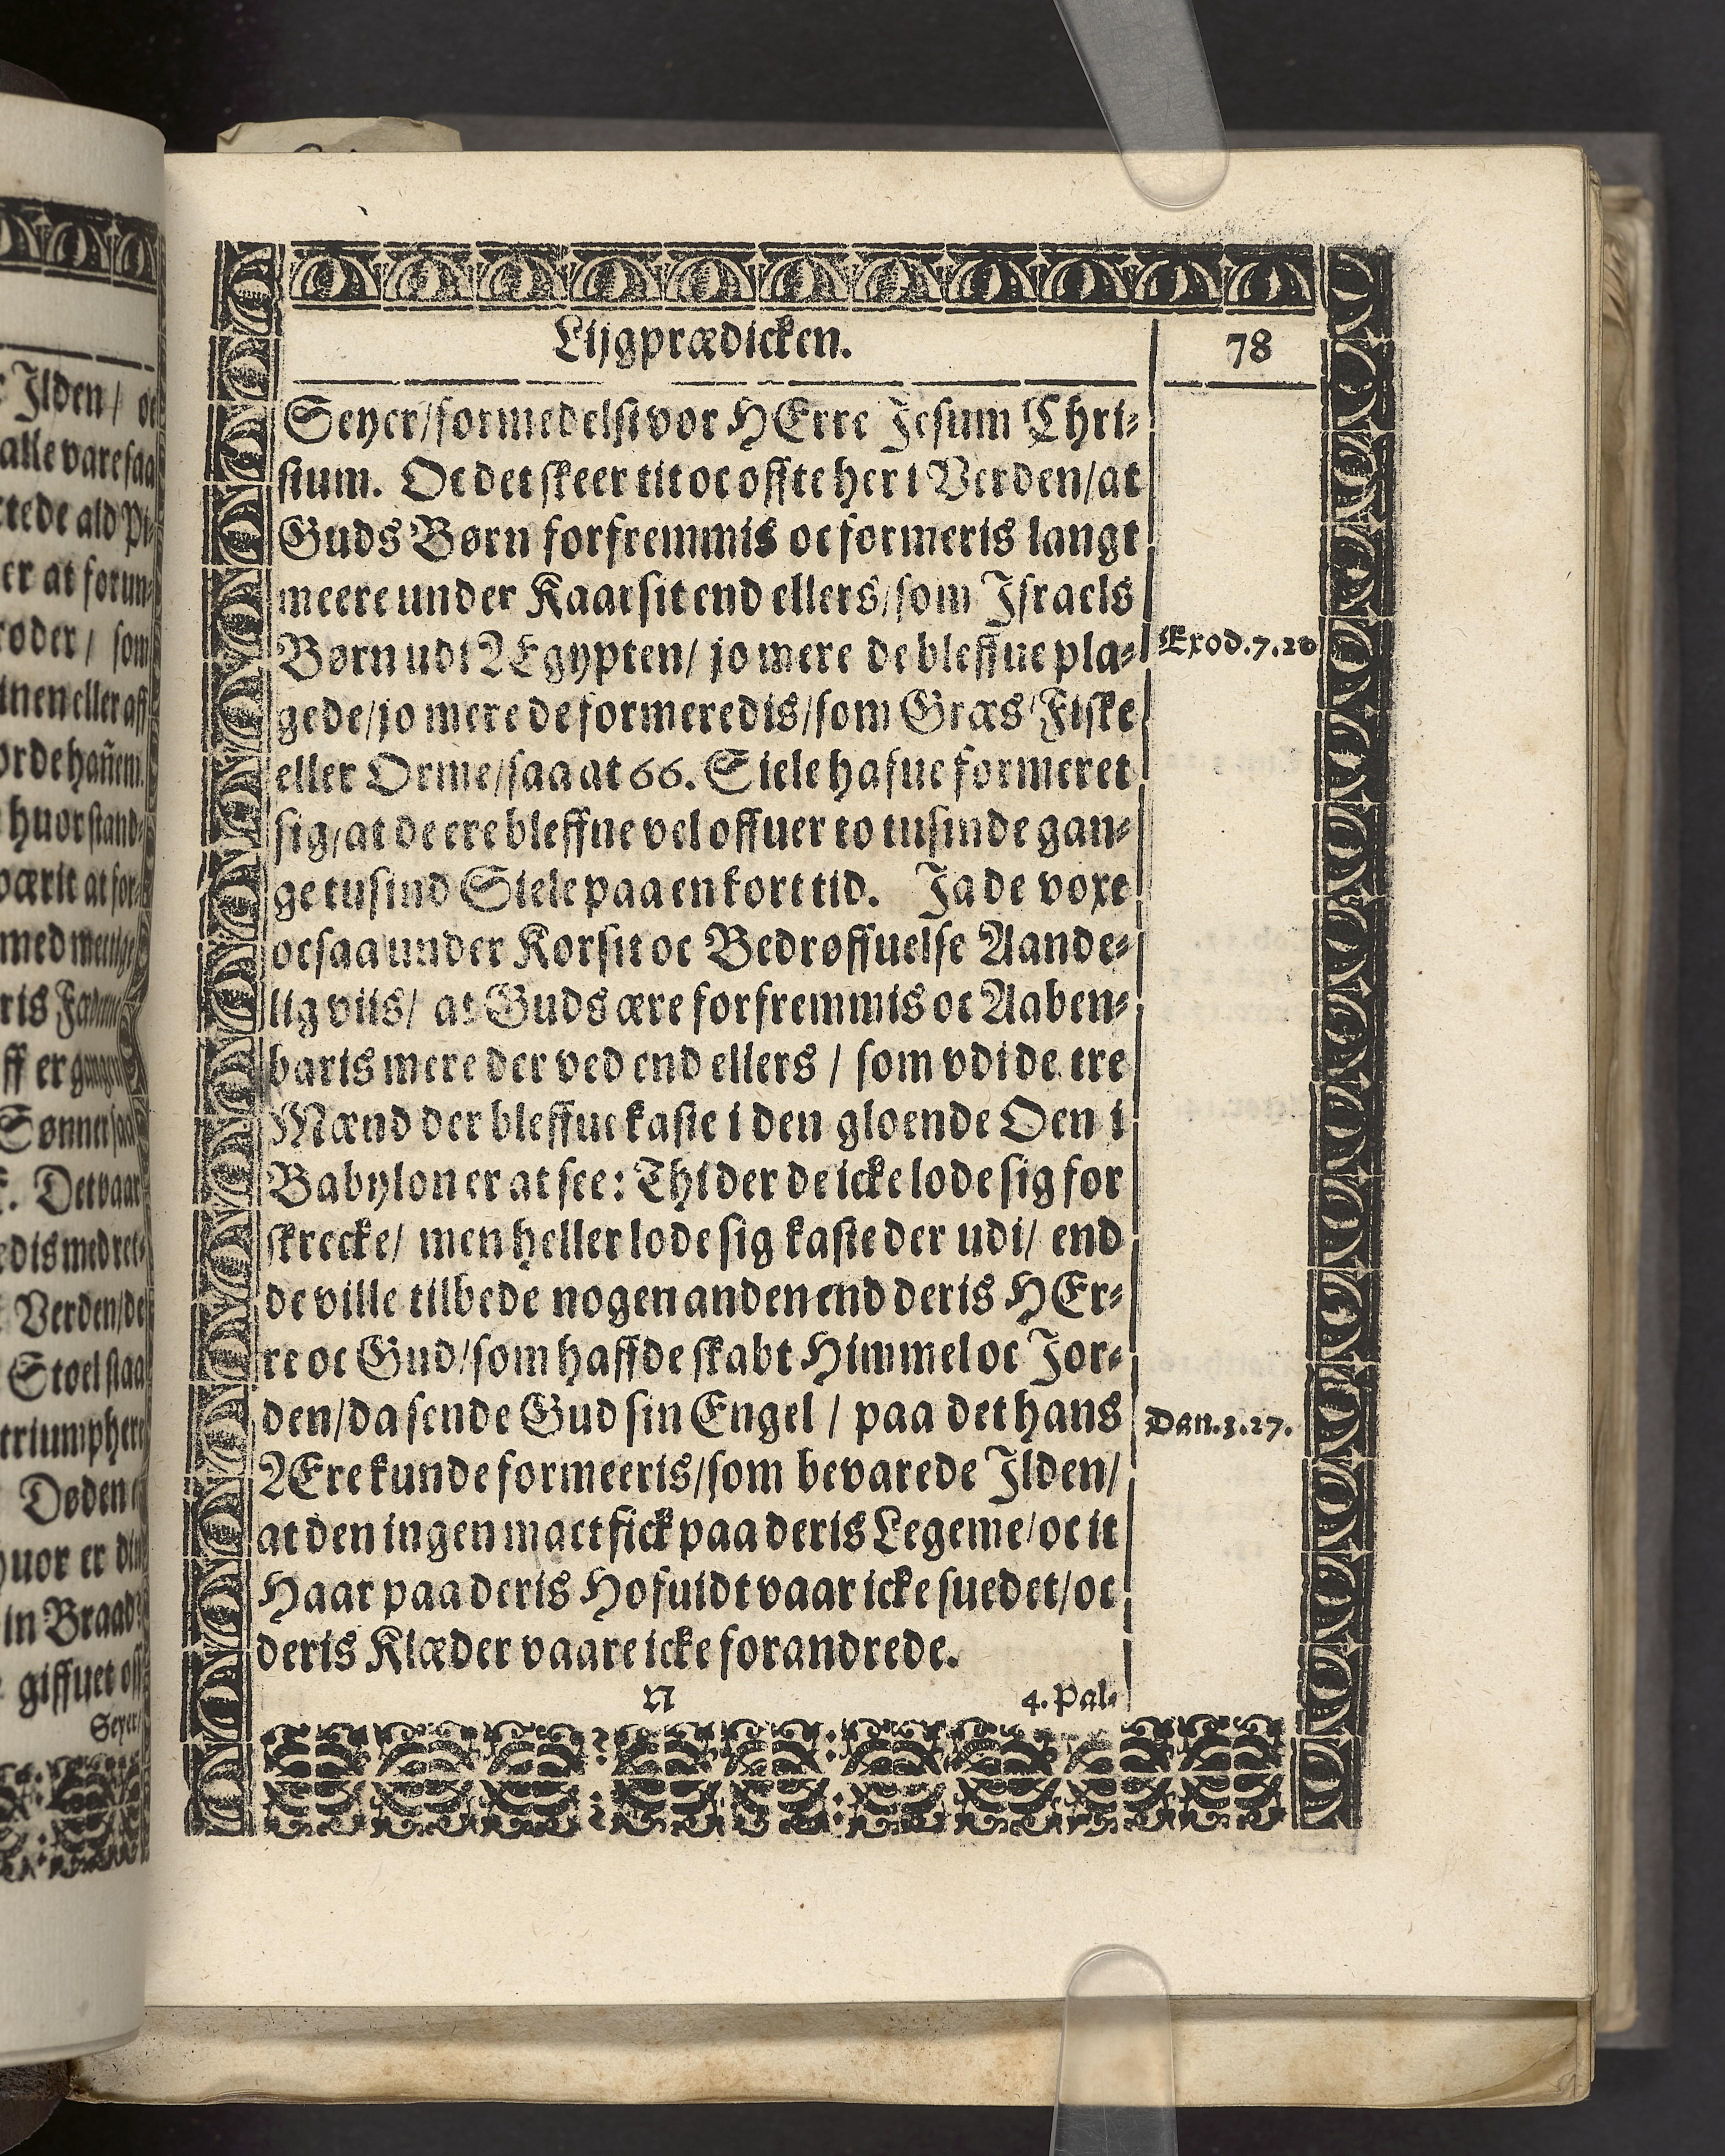 Lijgprædicken.
78
Seyer/formedelst vor HErre Jesum Chri-
stum. Oc det skeer tit oc offte her i Verden/at
Guds Børn forfremmis oc formeris langt
meere under Kaarsit end ellers/som Israels
Børn udi ÆGgypten/ jo mere de bleffue pla-
Exod.7.20
gede/jo mere de formeredis/som Græs/Fiske
eller Orme/saa at 66. Siele hafue formeret
sig/at de ere bleffne vel offuer to tusinde gan-
ge tusind Siele paa en kort tid. Ja de voxe
ocsaa under Korsit oc Bedrøffuelse Aande-
lig viis/ at Guds ære forfremmis oc Aaben-
baris mere der ved end ellers / som vdi de tre
Mænd der bleffue kaste i den gloende Oen i
Babylon er at see: Thi der de icke lode sig for
skrecke/ men heller lode sig kaste der udi/ end
de ville tilbede nogen anden end deris HEr-
re oc Gud/som haffde skabt Himmel oc Jor-
den/da sende Gud sin Engel / paa det hans
Dan.3.27.
ÆRE kunde formeeris/som bevarede Ilden/
at den ingen mact fick paa deris Legeme/oc it
Haar paa deris Hofuidt vaar icke suedet/oc
deris Klæder vaare icke forandrede.
N
4. Pal-